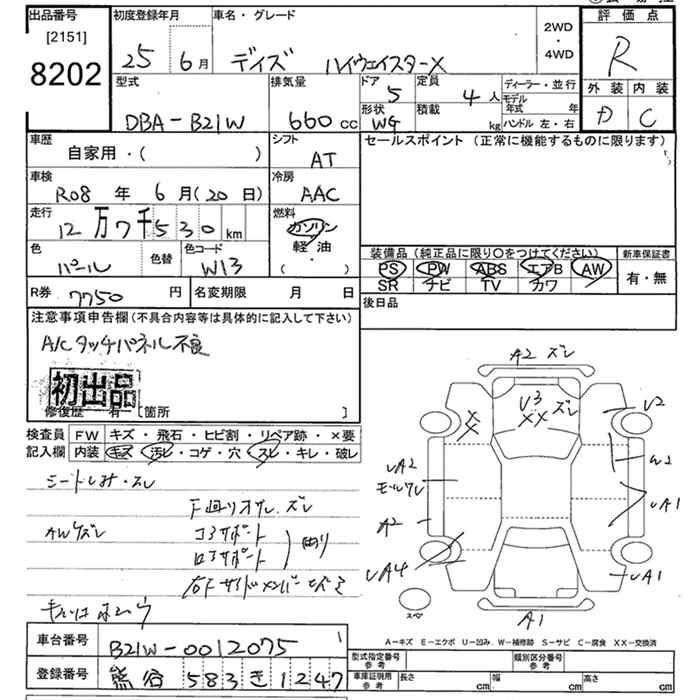 出品番号
[2151]
8202
初度登録年月
25 6月
車名・グレード
デイズ ハイウェイスターX
2WD
・
4WD
評価点
R
外装 内装
D C
型式
DBA-B21W
排気量
660 cc
ドア 5
形状 WG
定員 4人
積載 kg
ディーラー・並行
モデル年式 年
ハンドル 左・右
車歴
自家用・( )
シフト
AT
セールスポイント (正常に機能するものに限ります)
車検
R08 年 6月(20日)
冷房
AAC
走行
12万7千530 km
燃料
ガソリン
軽油
( ・ )
色
パール
色替
色コード
W13
装備品(純正品に限り○をつけてください)
PS PW ABS エアB AW
SR ナビ TV カワ
新車保証書
有・無
R券 7750 円
名変期限 月 日
後日品
注意事項申告欄(不具合内容等は具体的に記入して下さい)
A/Cタッチパネル不良
初出品
修復歴 有 [箇所 ]
検査員記入欄
FW キズ・飛石・ヒビ割・リペア跡・×要
内装 キズ・汚レ・コゲ・穴・スレ・キレ・破レ
シートしみ・スレ
下回りオサレ、ズレ
AWキズレ
コアサポート
ロアサポート
曲り
右Fサイドメンバー
A2 ズレ
U3
XX ズレ
XX
U2
UA2
モールワレ
W2
UA1
A2
UA4
UA1
A1
スペア
A-キズ E-エクボ U-凹み W-補修跡 S-サビ C-腐食 XX-交換済
車台番号 B21W-0012075 1
登録番号 熊谷 583 き 1247
型式指定番号
参考
類別区分番号
参考
車庫証明用
参考
長さ cm
幅 cm
高さ cm